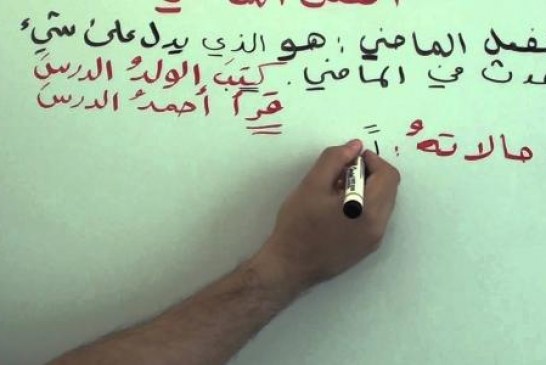 لفعل الماضي : هو الذي يدل على شيء
حدث في الماضي . كتبَ الولدُ الدرسَ
قرأَ أحمدُ الدرسَ
حالاتهُ :